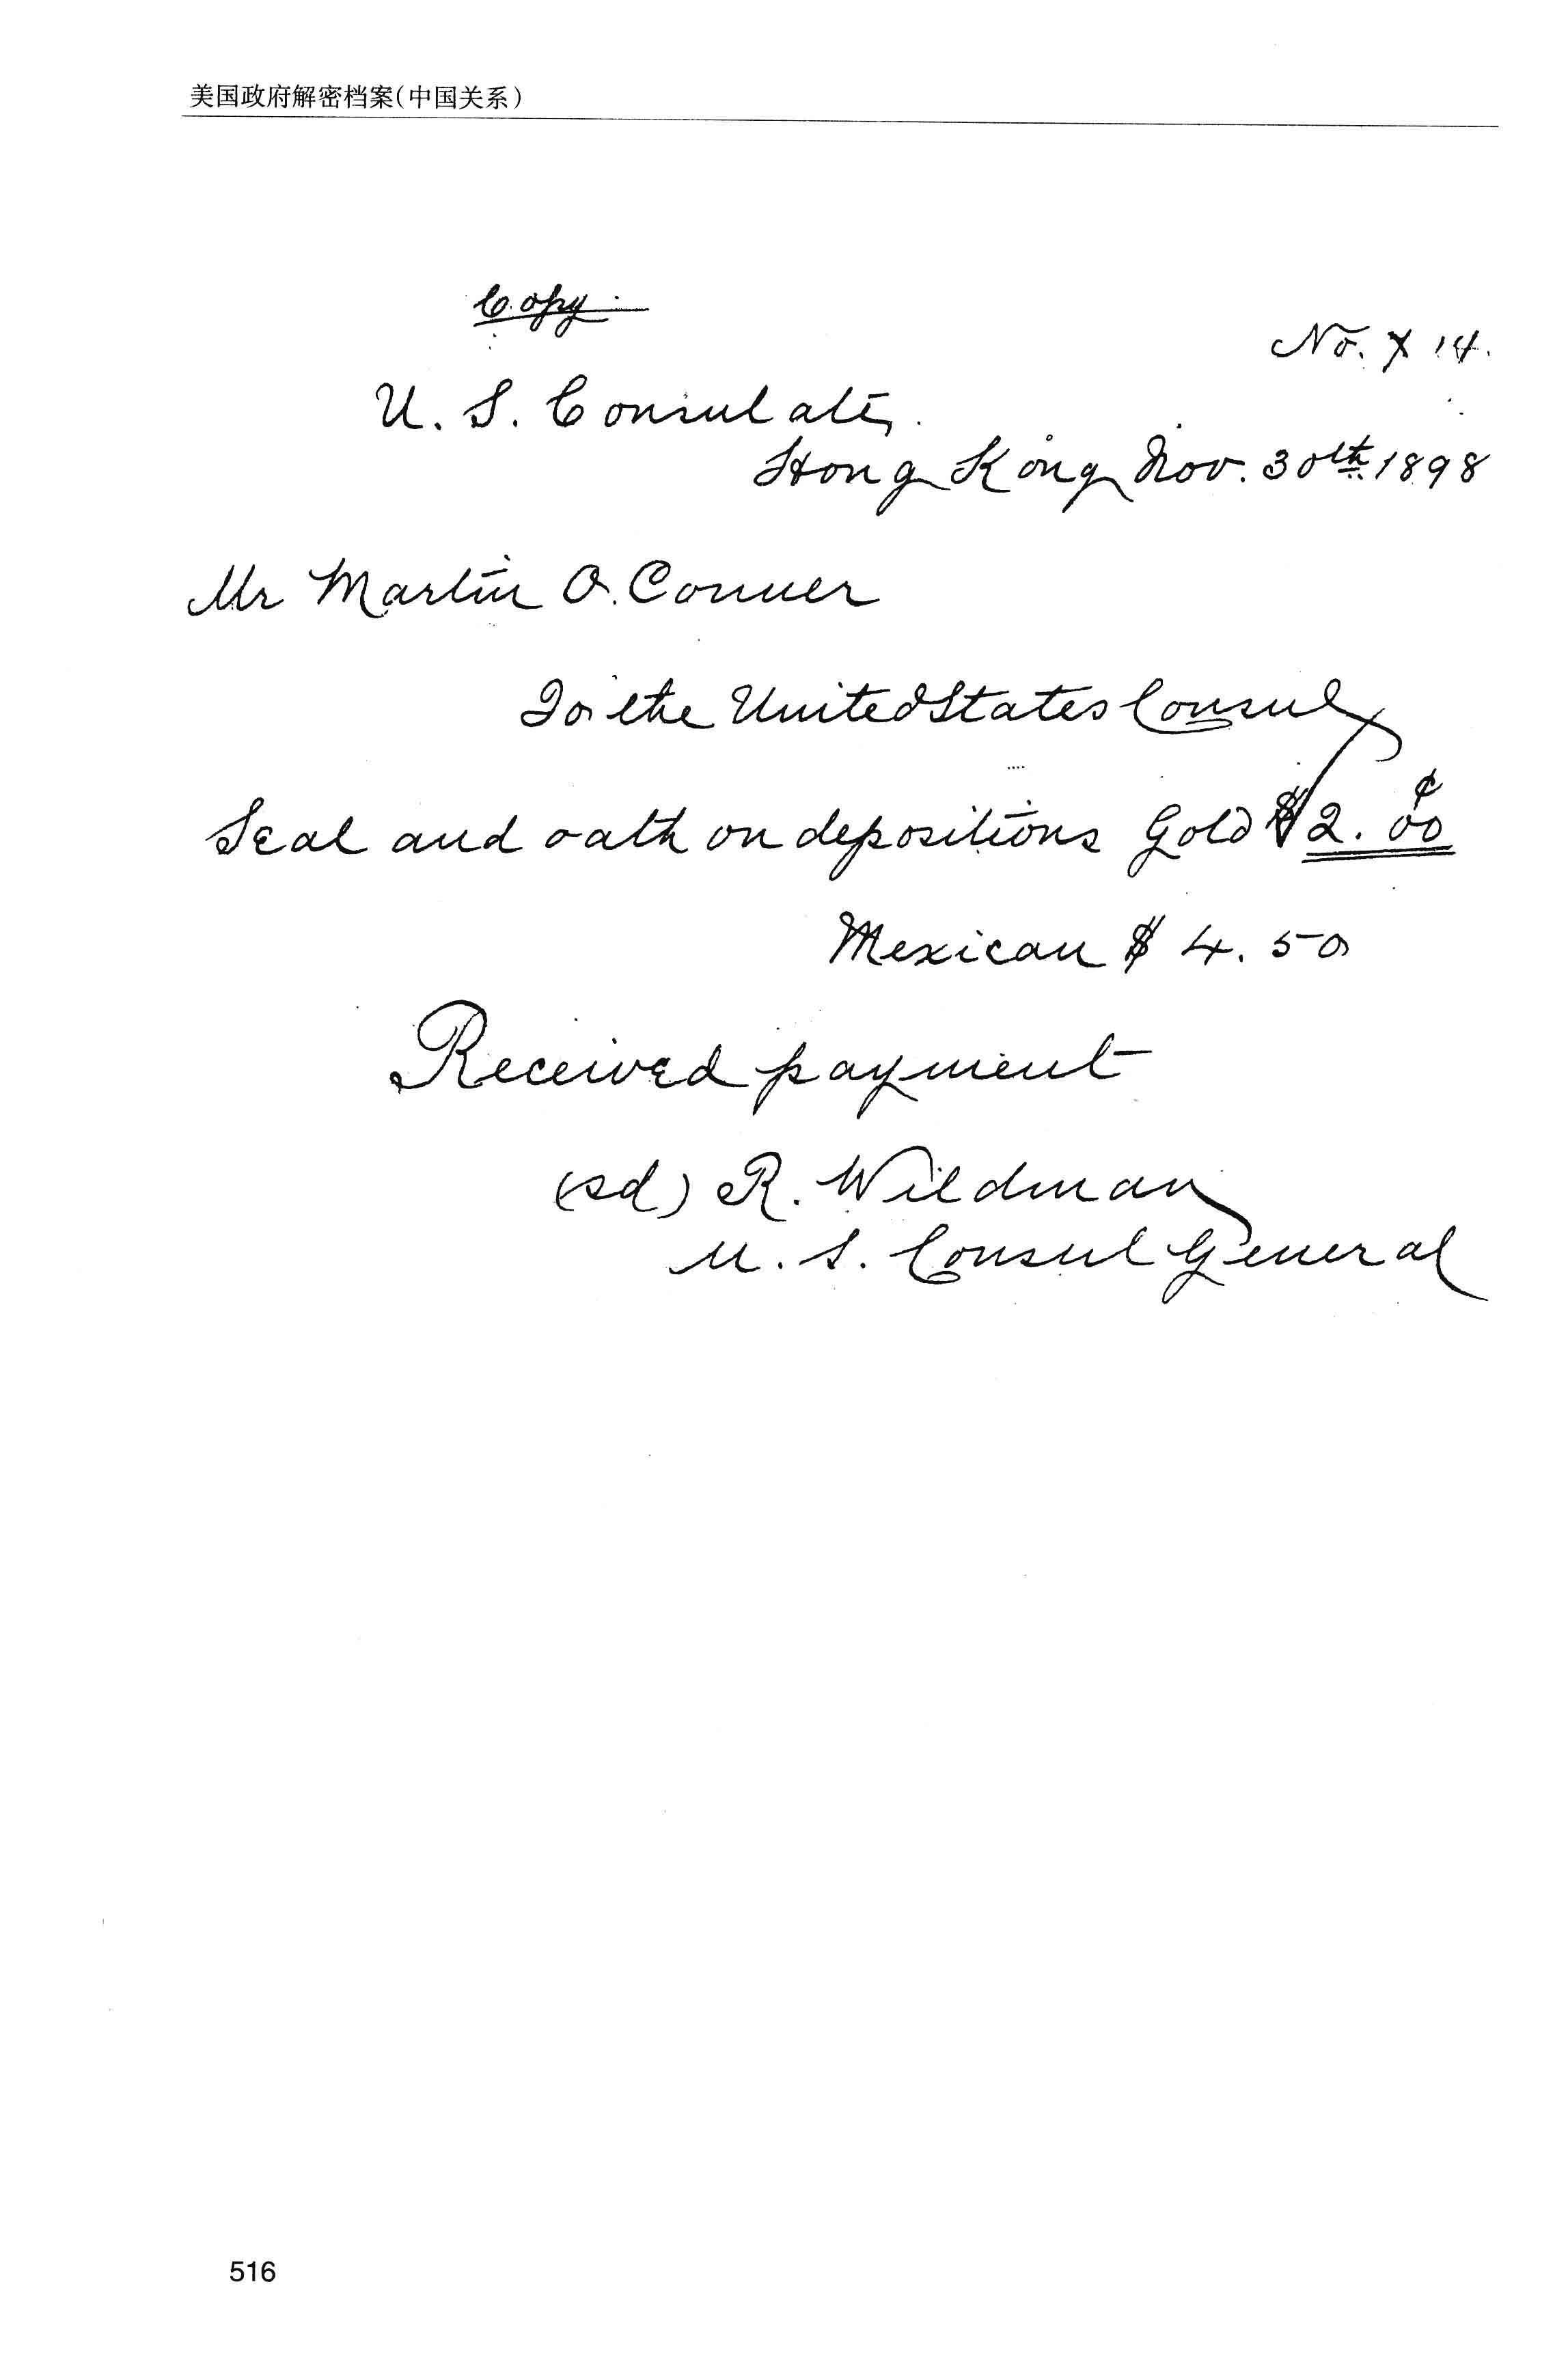 美国政府解密档案(中国关系)
Copy.
No. X 14.
U. S. Consulate,
Hong Kong Nov. 30th 1898
Mr Martin O. Conner
To the United States Consul
Seal and oath on depositions Gold $2.00
¢
Mexican $ 4.50
Received payment
(sd) R. Wildman
U. S. Consul General
516